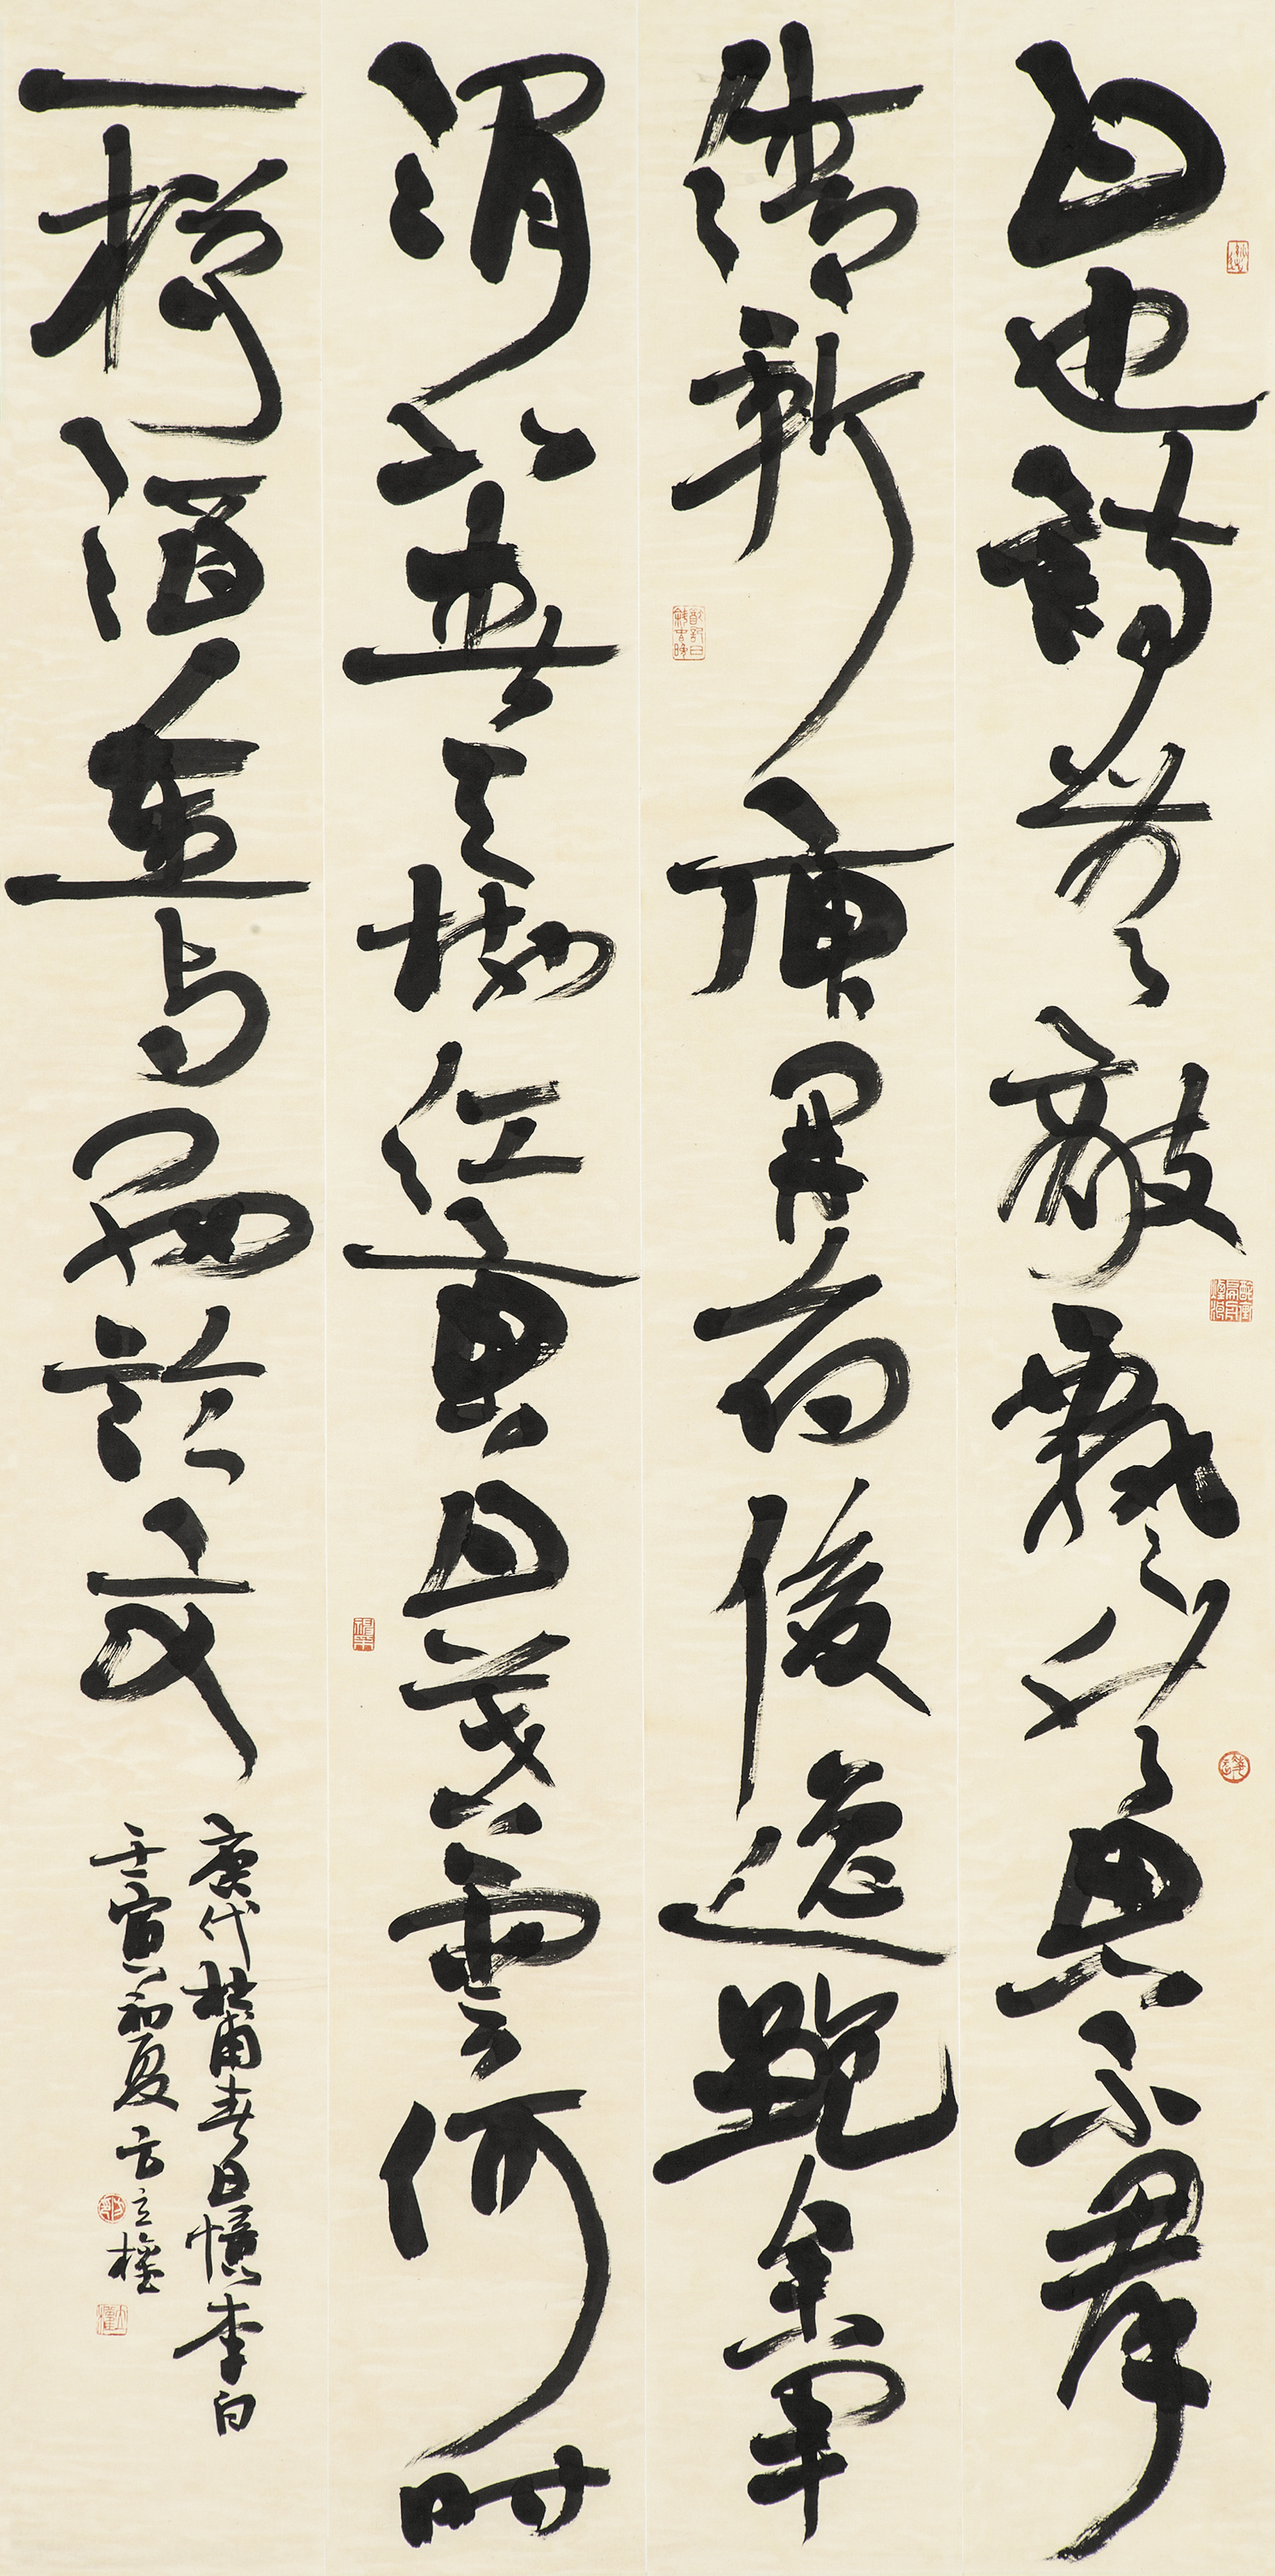 白也詩無敵飄然思不羣
清新庾開府俊逸鮑參軍
渭北春天樹江東日暮雲何時
一樽酒重與細論文
唐代杜甫春日憶李白
壬寅初夏方立權